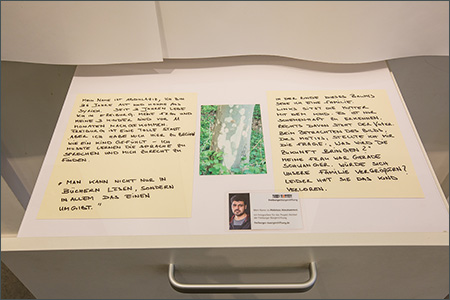 MEIN NAME IST ABDULAZIZ, ICH BIN
34 JAHRE ALT UND KOMME AUS
SYRIEN. SEIT 3 JAHREN LEBE
ICH IN FREIBURG. MEINE FRAU UND
MEINE 3 KINDER SIND VOR 11
MONATEN NACHGEKOMMEN.
FREIBURG IST EINE TOLLE STADT
ABER ICH HABE MICH HIER ZU BEGINN
WIE EIN KIND GEFÜHLT - ICH
MUSSTE LERNEN DIE SPRACHE ZU
SPRECHEN UND MICH ZURECHT ZU
FINDEN.
"MAN KANN NICHT NUR IN
BÜCHERN LESEN, SONDERN
IN ALLEM DAS EINEN
UMGIBT."
IN DER RINDE DIESES BAUMES
SEHE ICH EINE FAMILIE.
LINKS SITZT DIE MUTTER
MIT DEM KIND. ES IST NUR
SCHEMENHAFT ZU ERKENNEN.
RECHTS DAVON STEHT DER VATER.
BEIM BETRACHTEN DES BILDES
DAS MOTIVS STELLTE ICH MIR
DIE FRAGE: WAS WIRD DIE
ZUKUNFT BRINGEN?
MEINE FRAU WAR GERADE
SCHWANGER. WÜRDE SICH
UNSERE FAMILIE VERGRÖSSERN?
LEIDER HAT SIE DAS KIND
VERLOREN.